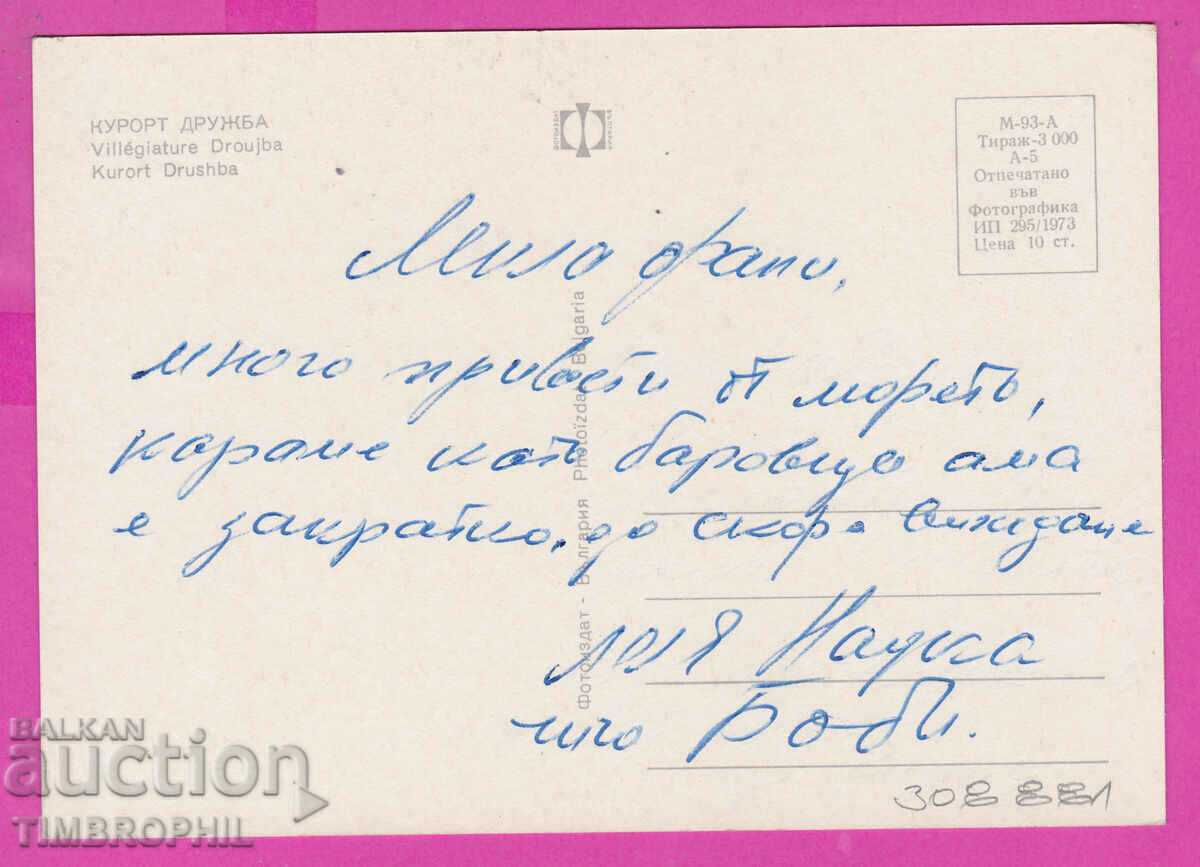 КУРОРТ ДРУЖБА
Villégiature Droujba
Kurort Drushba
ФОТОИЗДАТ
БЪЛГАРИЯ
М-93-А
Тираж-3 000
А-5
Отпечатано
във
Фотографика
ИП 295/1973
Цена 10 ст.
Мило
много привети от морето,
караме като баровци ама
е закратко. до скоро виждане
леля Надка
чичо Боби.
Фотоиздат - България Photoïzdat Bulgaria
308881
BALKAN
auction
TIMBROPHIL